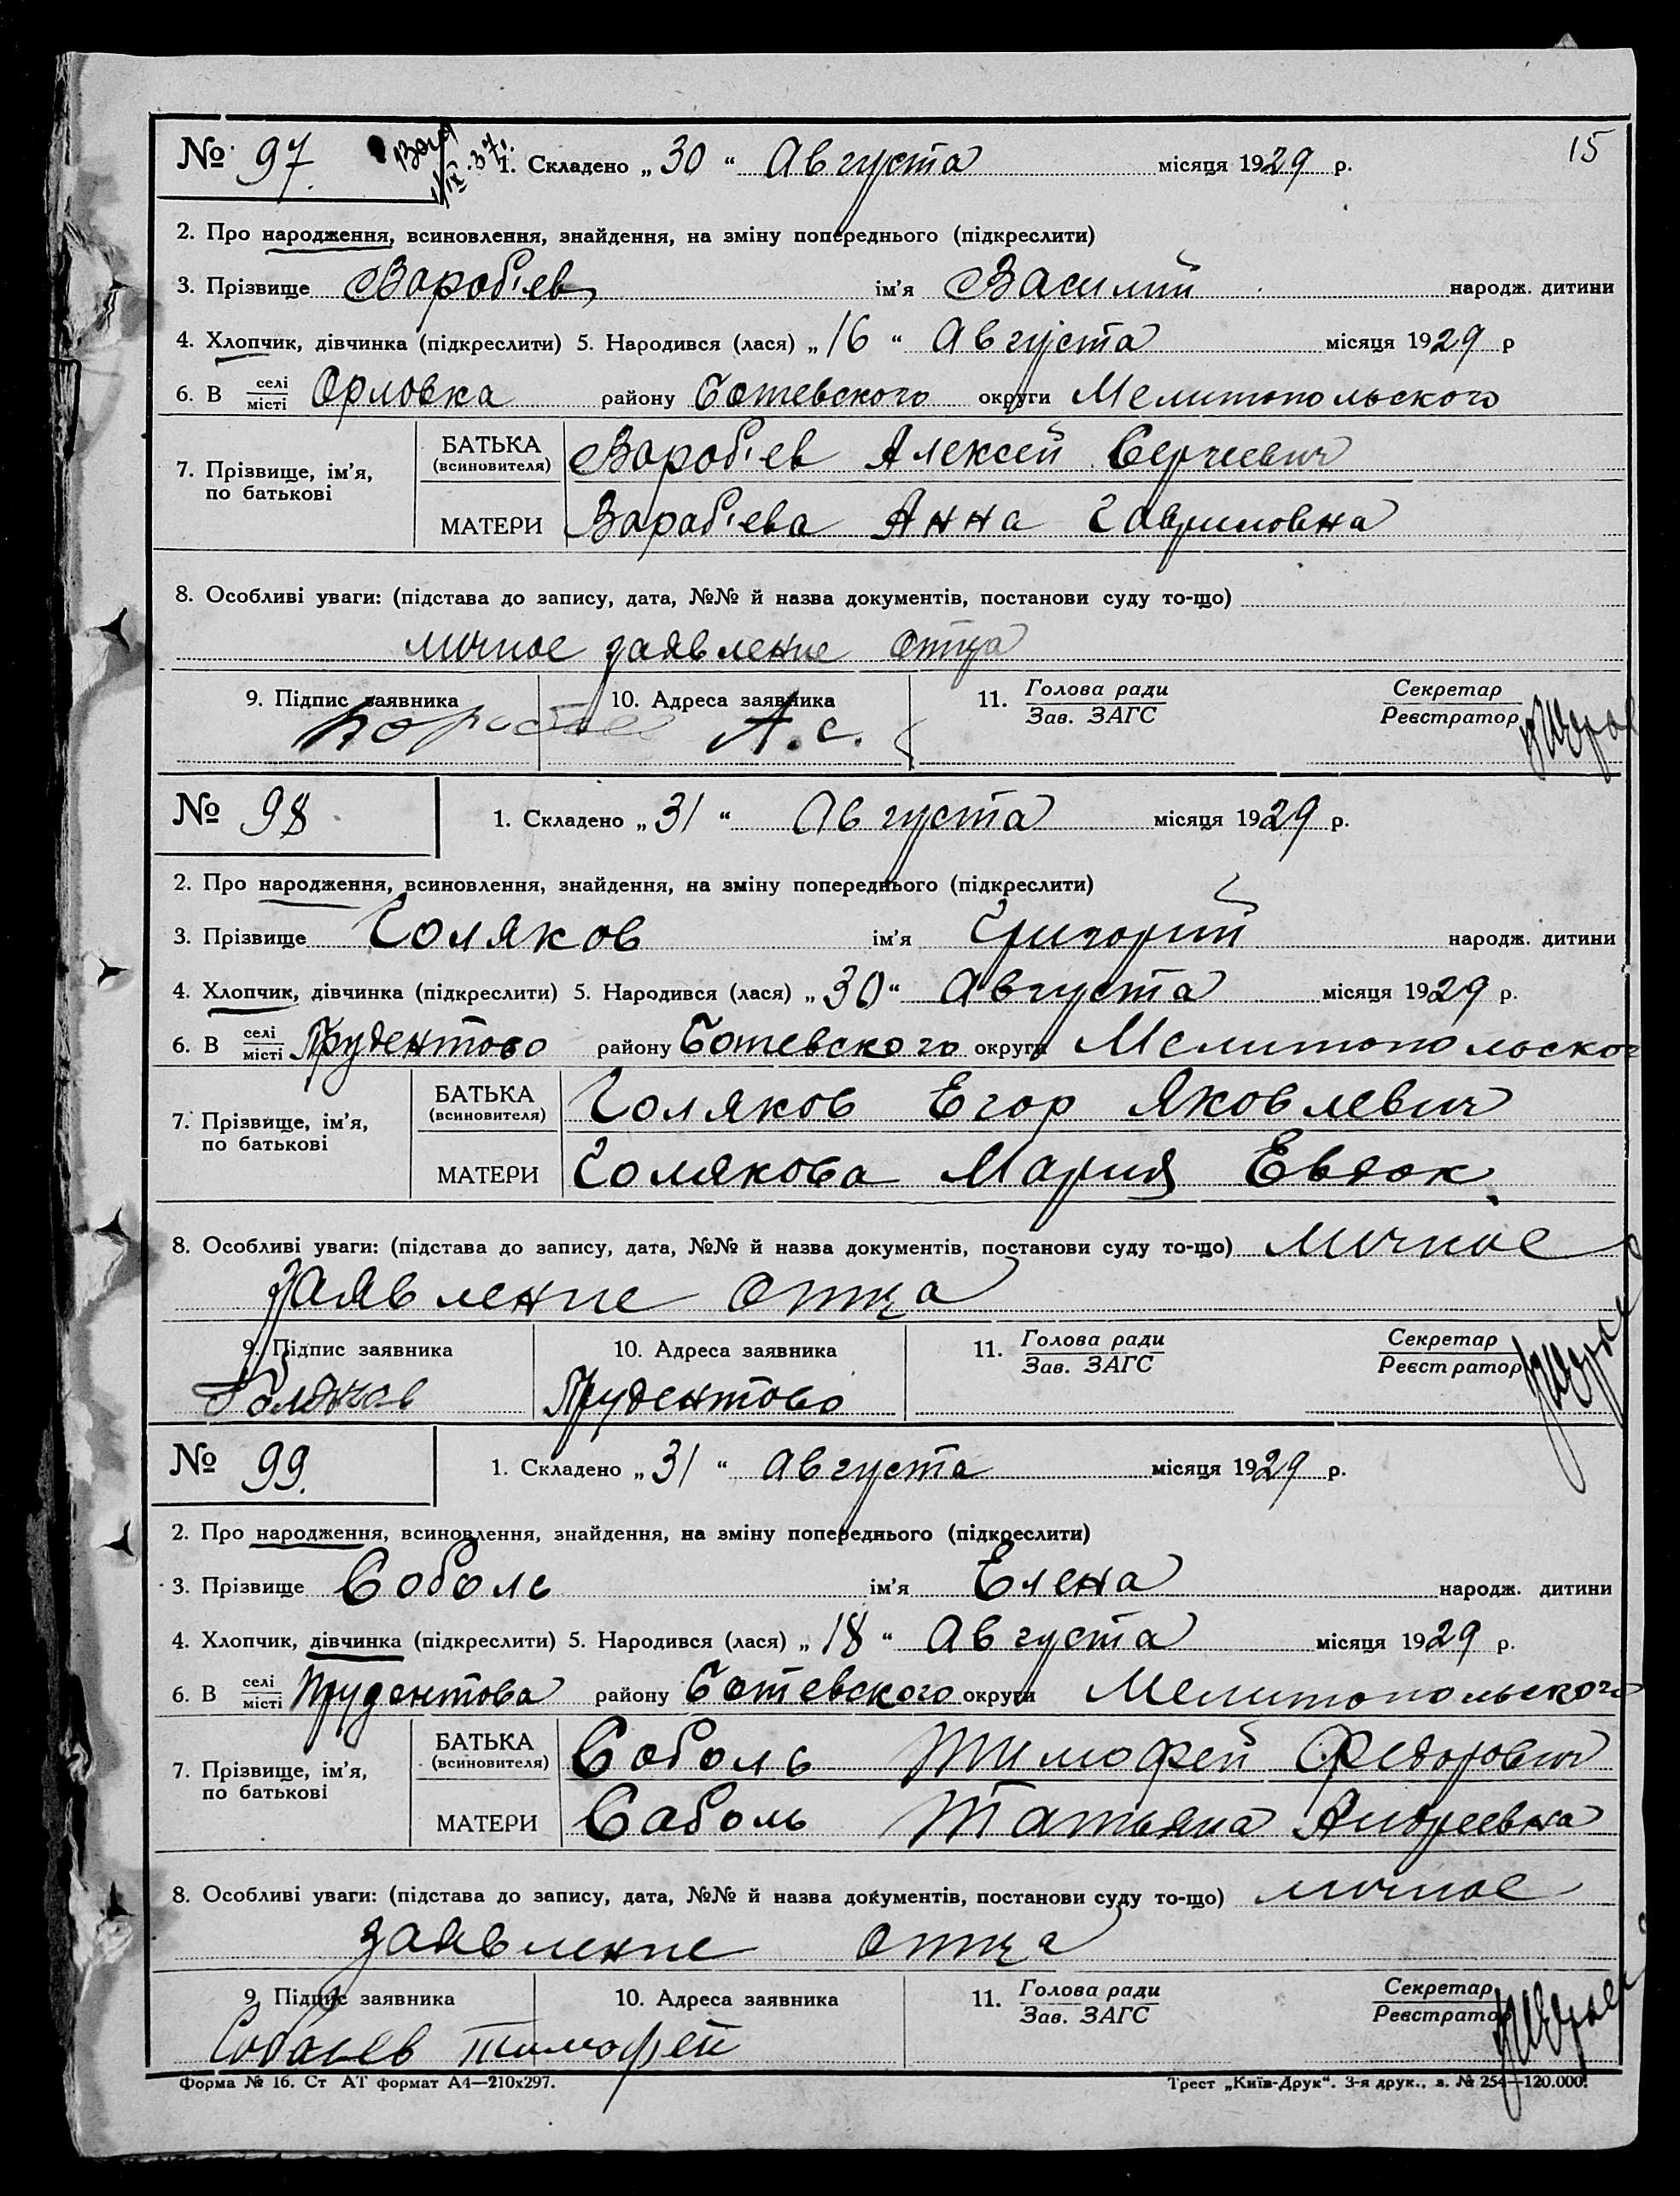 15
№ 97. 1. Складено „30“ Августа місяця 1929 р.
IX.37.
2. Про народження, всиновлення, знайдення, на зміну попереднього (підкреслити)
3. Прізвище Вороб'ев ім'я Василий народж. дитини
4. Хлопчик, дівчинка (підкреслити) 5. Народився (лася) „16“ Августа місяця 1929 р
6. В селі/місті Орловка району Ботевского округи Мелитопольского
7. Прізвище, ім'я, по батькові
БАТЬКА (всиновителя) Вороб'ев Алексей Сергеевич
МАТЕРИ Вараб'ева Анна Гавриловна
8. Особливі уваги: (підстава до запису, дата, №№ й назва документів, постанови суду то-що)
личное заявление отца
9. Підпис заявника 10. Адреса заявника 11. Голова ради/Зав. ЗАГС Секретар/Реєстратор
А.С.
№ 98 1. Складено „31“ Августа місяця 1929 р.
2. Про народження, всиновлення, знайдення, на зміну попереднього (підкреслити)
3. Прізвище Голяков ім'я Григорий народж. дитини
4. Хлопчик, дівчинка (підкреслити) 5. Народився (лася) „30“ Августа місяця 1929 р.
6. В селі/місті Прудентово району Ботевского округи Мелитопольског
7. Прізвище, ім'я, по батькові
БАТЬКА (всиновителя) Голяков Егор Яковлевич
МАТЕРИ Голякова Мария Евдок.
8. Особливі уваги: (підстава до запису, дата, №№ й назва документів, постанови суду то-що) личное
заявление отца
9. Підпис заявника 10. Адреса заявника 11. Голова ради/Зав. ЗАГС Секретар/Реєстратор
Голяков Прудентово
№ 99. 1. Складено „31“ Августа місяця 1929 р.
2. Про народження, всиновлення, знайдення, на зміну попереднього (підкреслити)
3. Прізвище Соболь ім'я Елена народж. дитини
4. Хлопчик, дівчинка (підкреслити) 5. Народився (лася) „18“ Августа місяця 1929 р.
6. В селі/місті Прудентова району Ботевского округи Мелитопольского
7. Прізвище, ім'я, по батькові
БАТЬКА (всиновителя) Соболь Тимофей Федорович
МАТЕРИ Саболь Татьяна Андреевна
8. Особливі уваги: (підстава до запису, дата, №№ й назва документів, постанови суду то-що) личное
заявление отца
9. Підпис заявника 10. Адреса заявника 11. Голова ради/Зав. ЗАГС Секретар/Реєстратор
Тимофей
Форма № 16. Ст АТ формат А4—210х297. Трест „Київ-Друк“. 3-я друк., з. № 254—120.000.